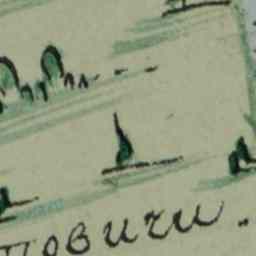 товичи.